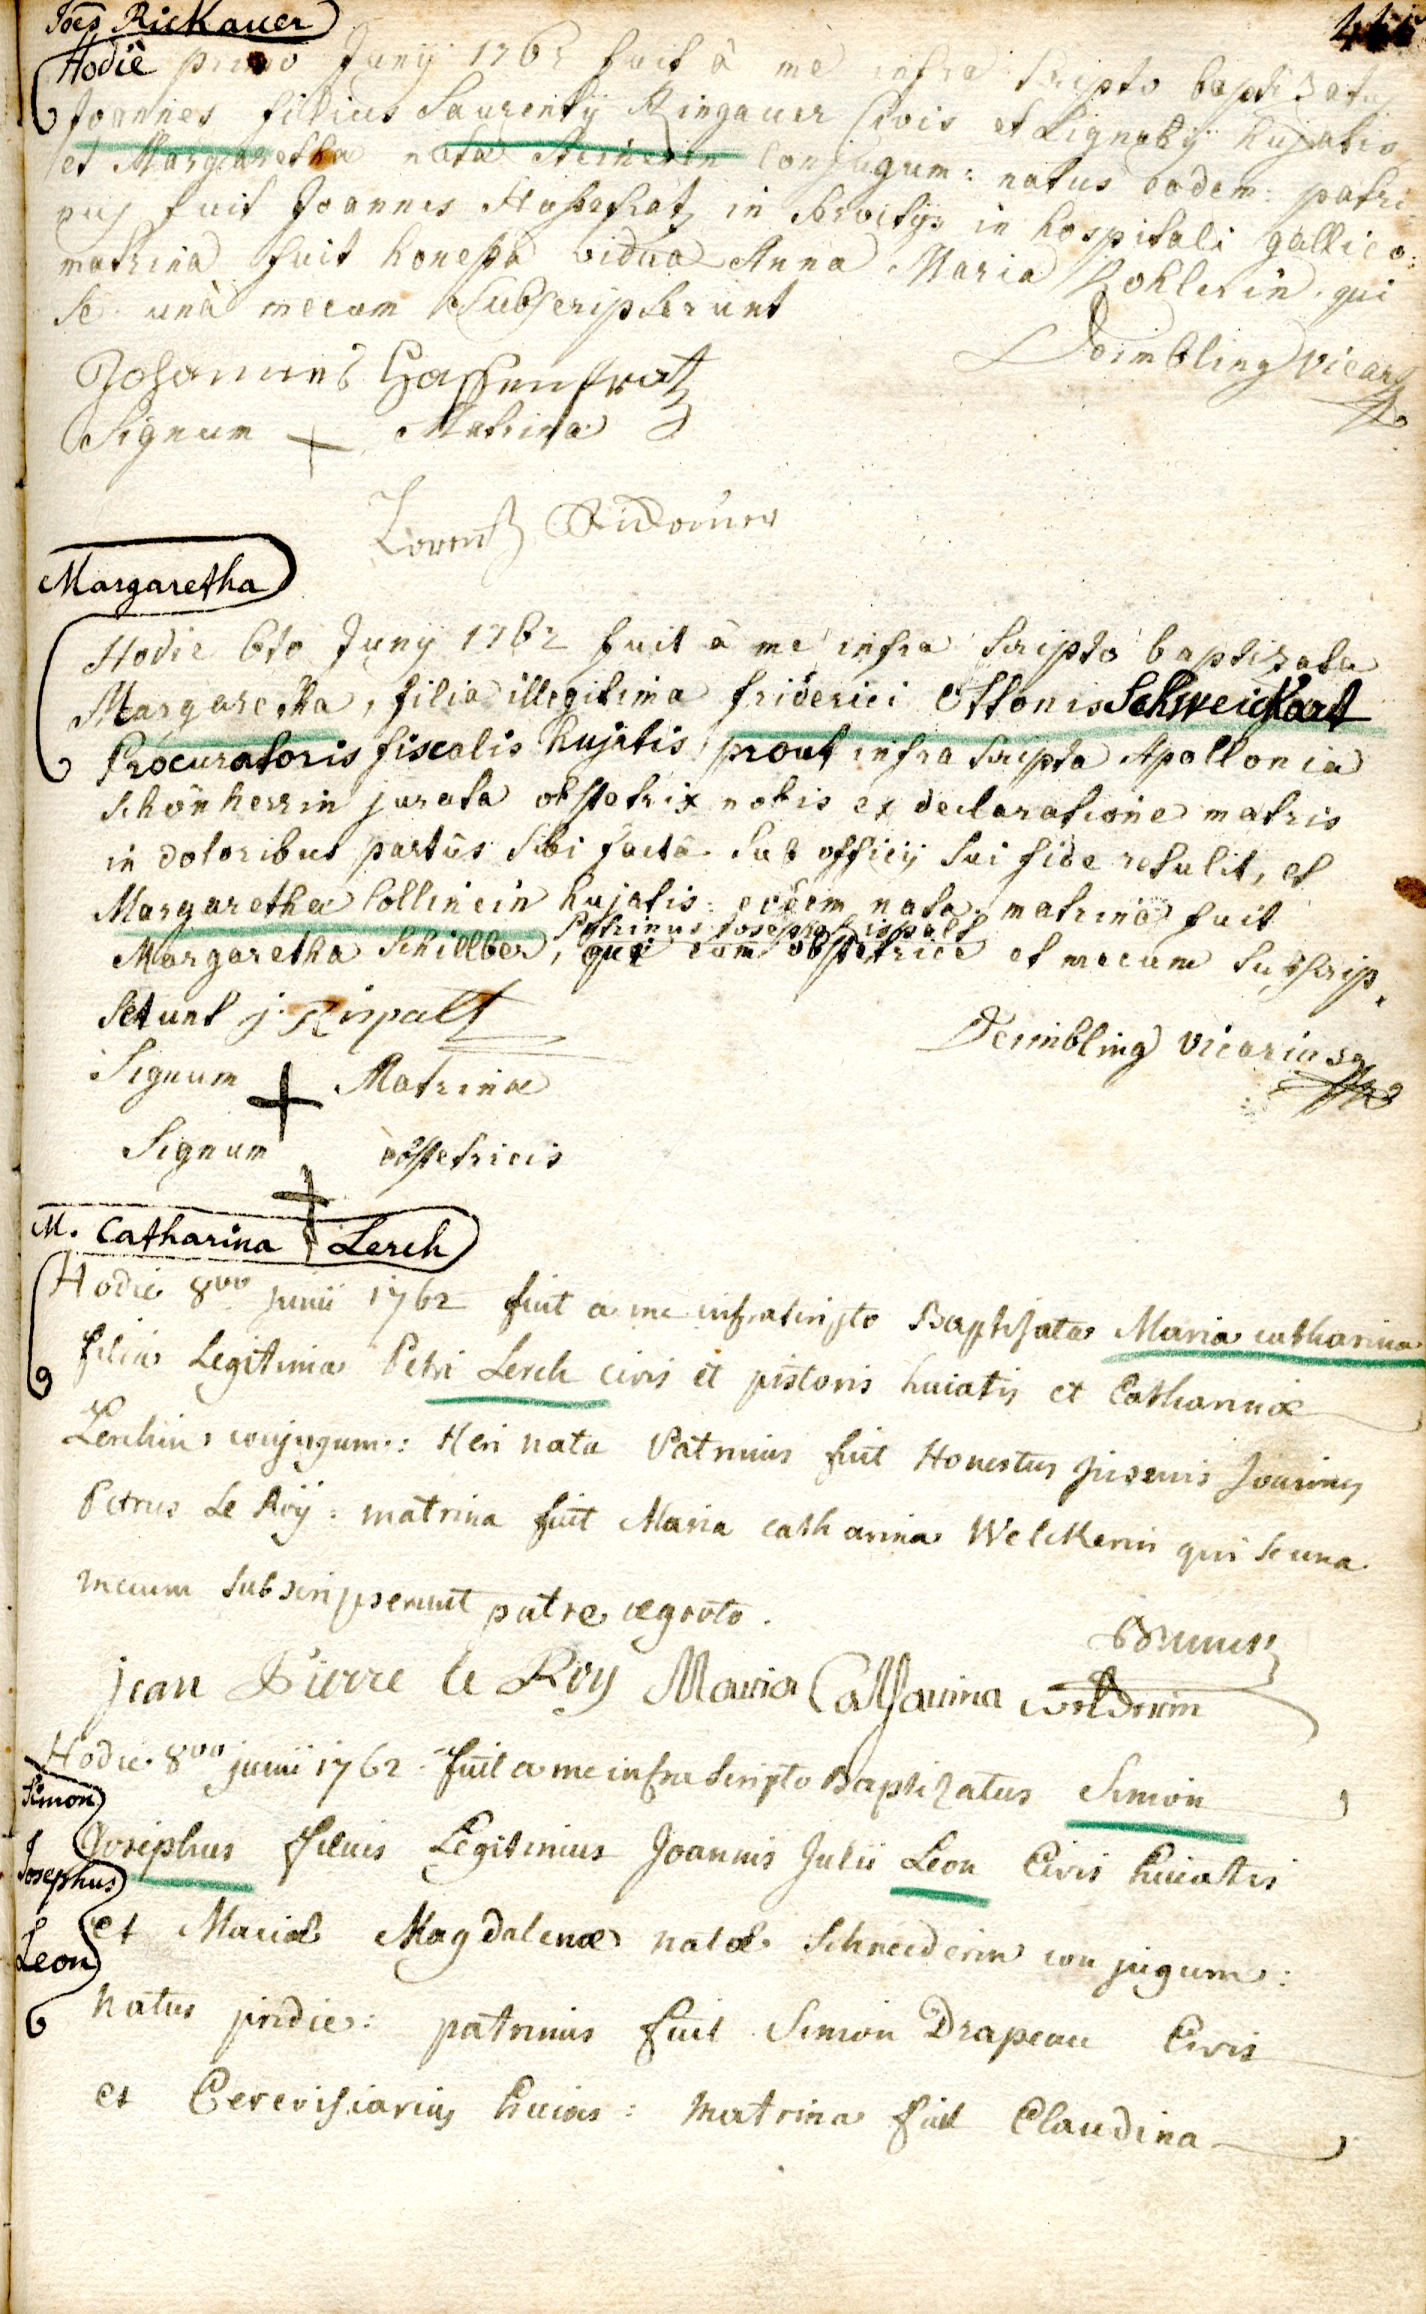 Joes Rickauer
Hodie primo Juny 1762 fuit à me infra scripto baptizatus
Joannes filius Laurentÿ Ringauer Civis et Lignarÿ hujatis
et Margaretha nata conjugum: natus eodem: patri-
nus fuit Joannes Hasefratz in servitÿs in hospitali gallico:
matrina fuit honesta vidua Anna Maria Kohlerin qui
se unà mecum subscripserunt
Deimbling Vicarius
Johannes Hassenfratz
Signum + Matrina
Lorentz
Margaretha
Hodie 6to Junÿ 1762 fuit à me infra scripto baptizata
Margaretha, filia illegitima friderici Ottonis Schweickart
Procuratoris fiscalis hujatis, prout infra scripta Apollonia
Schönherrin jurata obstetrix nobis ex declaratione matris
in doloribus partûs sibi factâ sub officÿ sui fide retulit, et
Margaretha Collinein hujatis: eodem nata, matrina fuit
Patrinus Joseph Rispalt
Margaretha Schillber, qui cum obstetrice et mecum subscrip-
serunt j. Rispalt
Deimbling vicarius
Signum + Matrinæ
Signum + obstetricis
M. Catharina Lerch
Hodie 8vo junii 1762 fuit a me infrascripto Baptisata Maria catharina
filia Legitima Petri Lerch civis et pistoris huiatis et Catharinæ
Lerchin conjugum: Heri nata Patrinus fuit Honestus juvenis Joannes
Petrus Le Roÿ: matrina fuit Maria catharina Welckerin qui se una
mecum subscripserunt patre ægroto.
jean Pierre le Roy Maria Catharina
Hodie 8vo junii 1762 fuit a me infra scripto Baptizatus Simon
Simon
Josephus filius Legitimus Joannis Julii Leon Civis huiatis
Josephus
et Mariæ Magdalenæ natæ Schneiderin conjugum:
Leon
natus pridie: patrinus fuit Simon Drapeau Civis
et Cerevisiarius huias: matrina fuit Claudina